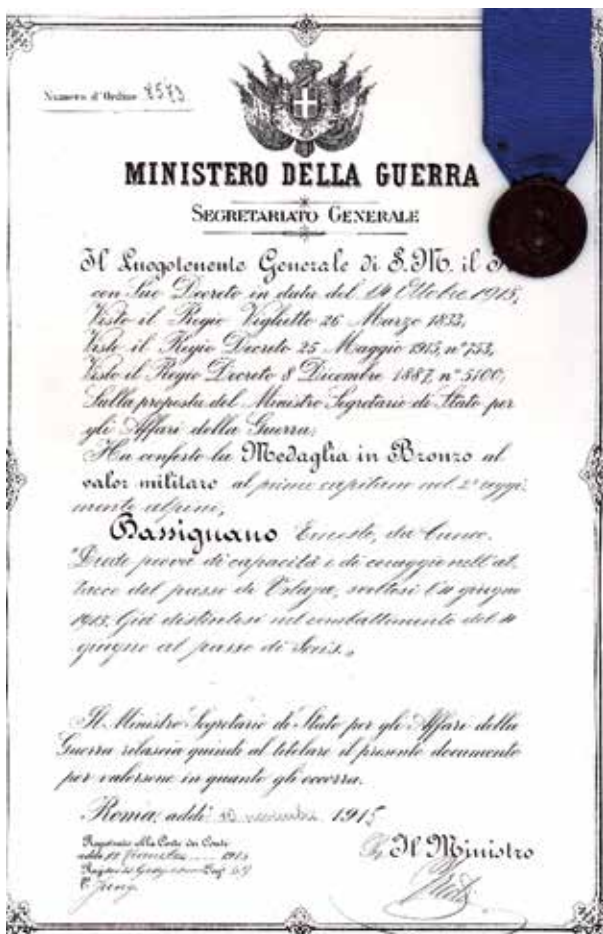 Numero d'Ordine 8573
MINISTERO DELLA GUERRA
SEGRETARIATO GENERALE
Il Luogotenente Generale di S. M. il
con Suo Decreto in data del 14 Ottobre 1915,
Visto il Regio Viglietto 26 Marzo 1833,
Visto il Regio Decreto 25 Maggio 1915, n° 753,
Visto il Regio Decreto 8 Dicembre 1887, n° 5100,
Sulla proposta del Ministro Segretario di Stato per
gli Affari della Guerra,
Ha conferito la Medaglia in Bronzo al
valor militare al primo capitano nel 2° reggi
mento alpini,
Bassignano Ernesto, da Cuneo.
"Diede prova di capacità e di coraggio nell'at
tacco del passo di svoltosi giugno
1915. Già distintosi nel combattimento del
giugno al passo di
Il Ministro Segretario di Stato per gli Affari della
Guerra rilascia quindi al titolare il presente documento
per valersene in quanto gli occorra.
Roma, addì 10 novembre 1915
Registrato alla Corte dei Conti
addì 1915
Registro Guerra
Il Ministro